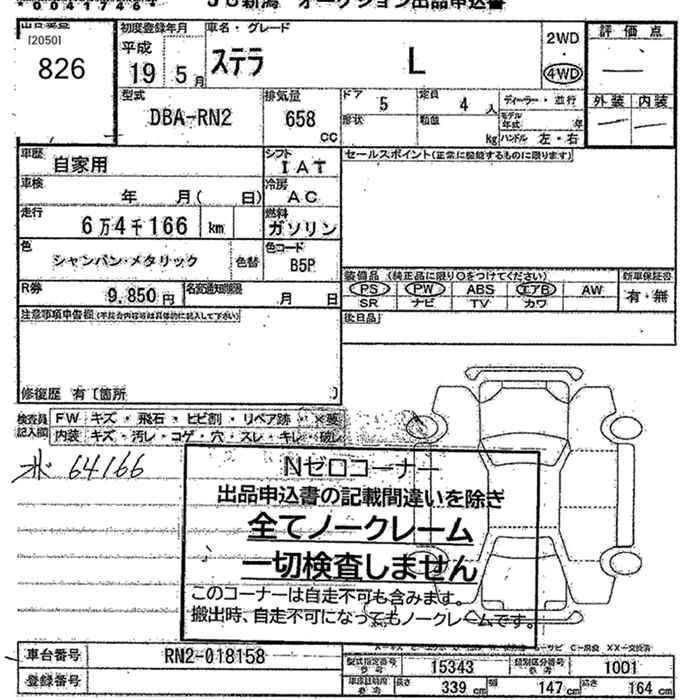 *00417464*
JU新潟 オークション出品申込書
[2050]
826
初度登録年月
平成
19 5月
車名・グレード
ステラ L
2WD
・
4WD
評価点
外装 内装
型式
DBA-RN2
排気量
658
cc
ドア 5
定員 4人
形状
kg
ディーラー・並行
モデル年式 年
ハンドル 左・右
車歴
自家用
シフト
IAT
車検
年 月( 日)
冷房
AC
走行
6万4千166 km
燃料
ガソリン
色
シャンパン・メタリック
色替
色コード
B5P
R券
9,850円
名変通知期限
月 日
セールスポイント(正常に機能するものに限ります)
装備品 (純正品に限り○をつけてください)
新車保証書
PS PW ABS エアB AW
SR ナビ TV カワ
有・無
後日品
注意事項申告欄(不具合内容等は具体的に記入して下さい)
修復歴 有〔箇所 〕
検査員
記入欄
FW キズ・飛石・ヒビ割・リペア跡・×要
内装 キズ・汚レ・コゲ・穴・スレ・キレ・破レ
64166
Nゼロコーナー
出品申込書の記載間違いを除き
全てノークレーム
一切検査しません
このコーナーは自走不可も含みます。
搬出時、自走不可になってもノークレームです。
車台番号
RN2-018158
登録番号
型式指定番号
15343
類別区分番号
1001
長さ 339cm
幅 147cm
高さ 164cm